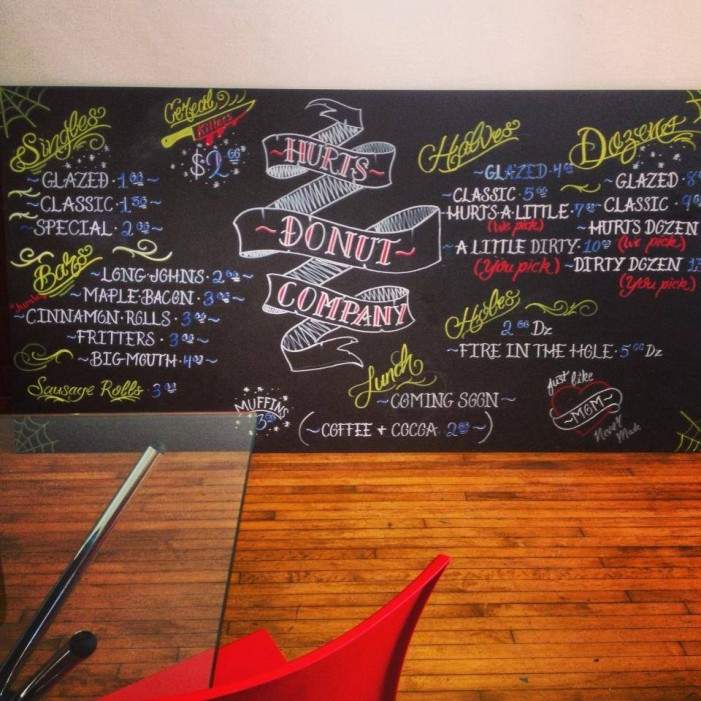 Singles
~GLAZED·1.00
~CLASSIC·1.50
~SPECIAL·2.00
Cereal
Killers
$2.00
Bars
~LONG·JOHNS·2.00~
~MAPLE·BACON·3.00~
Jumbo
~CINNAMON·ROLLS·3.00
~FRITTERS·3.00
~BIG·MOUTH·4.00~
Sausage Rolls 3.00
~HURTS~
~DONUT~
COMPANY
MUFFINS
3.00
Lunch
~COMING SOON~
(~COFFEE + COCOA 2.00~)
Halves
~GLAZED·4.00
~CLASSIC·5.00
HURTS·A·LITTLE·7
(We pick)
~A LITTLE DIRTY·10.00
(You pick)
Holes
2.00 Dz
~FIRE IN THE HOLE·5.00 Dz
Dozens
~GLAZED·8
~CLASSIC·9
~HURTS DOZEN
(We pick)
~DIRTY DOZEN
(You pick)
just like
~MOM~
Never Made